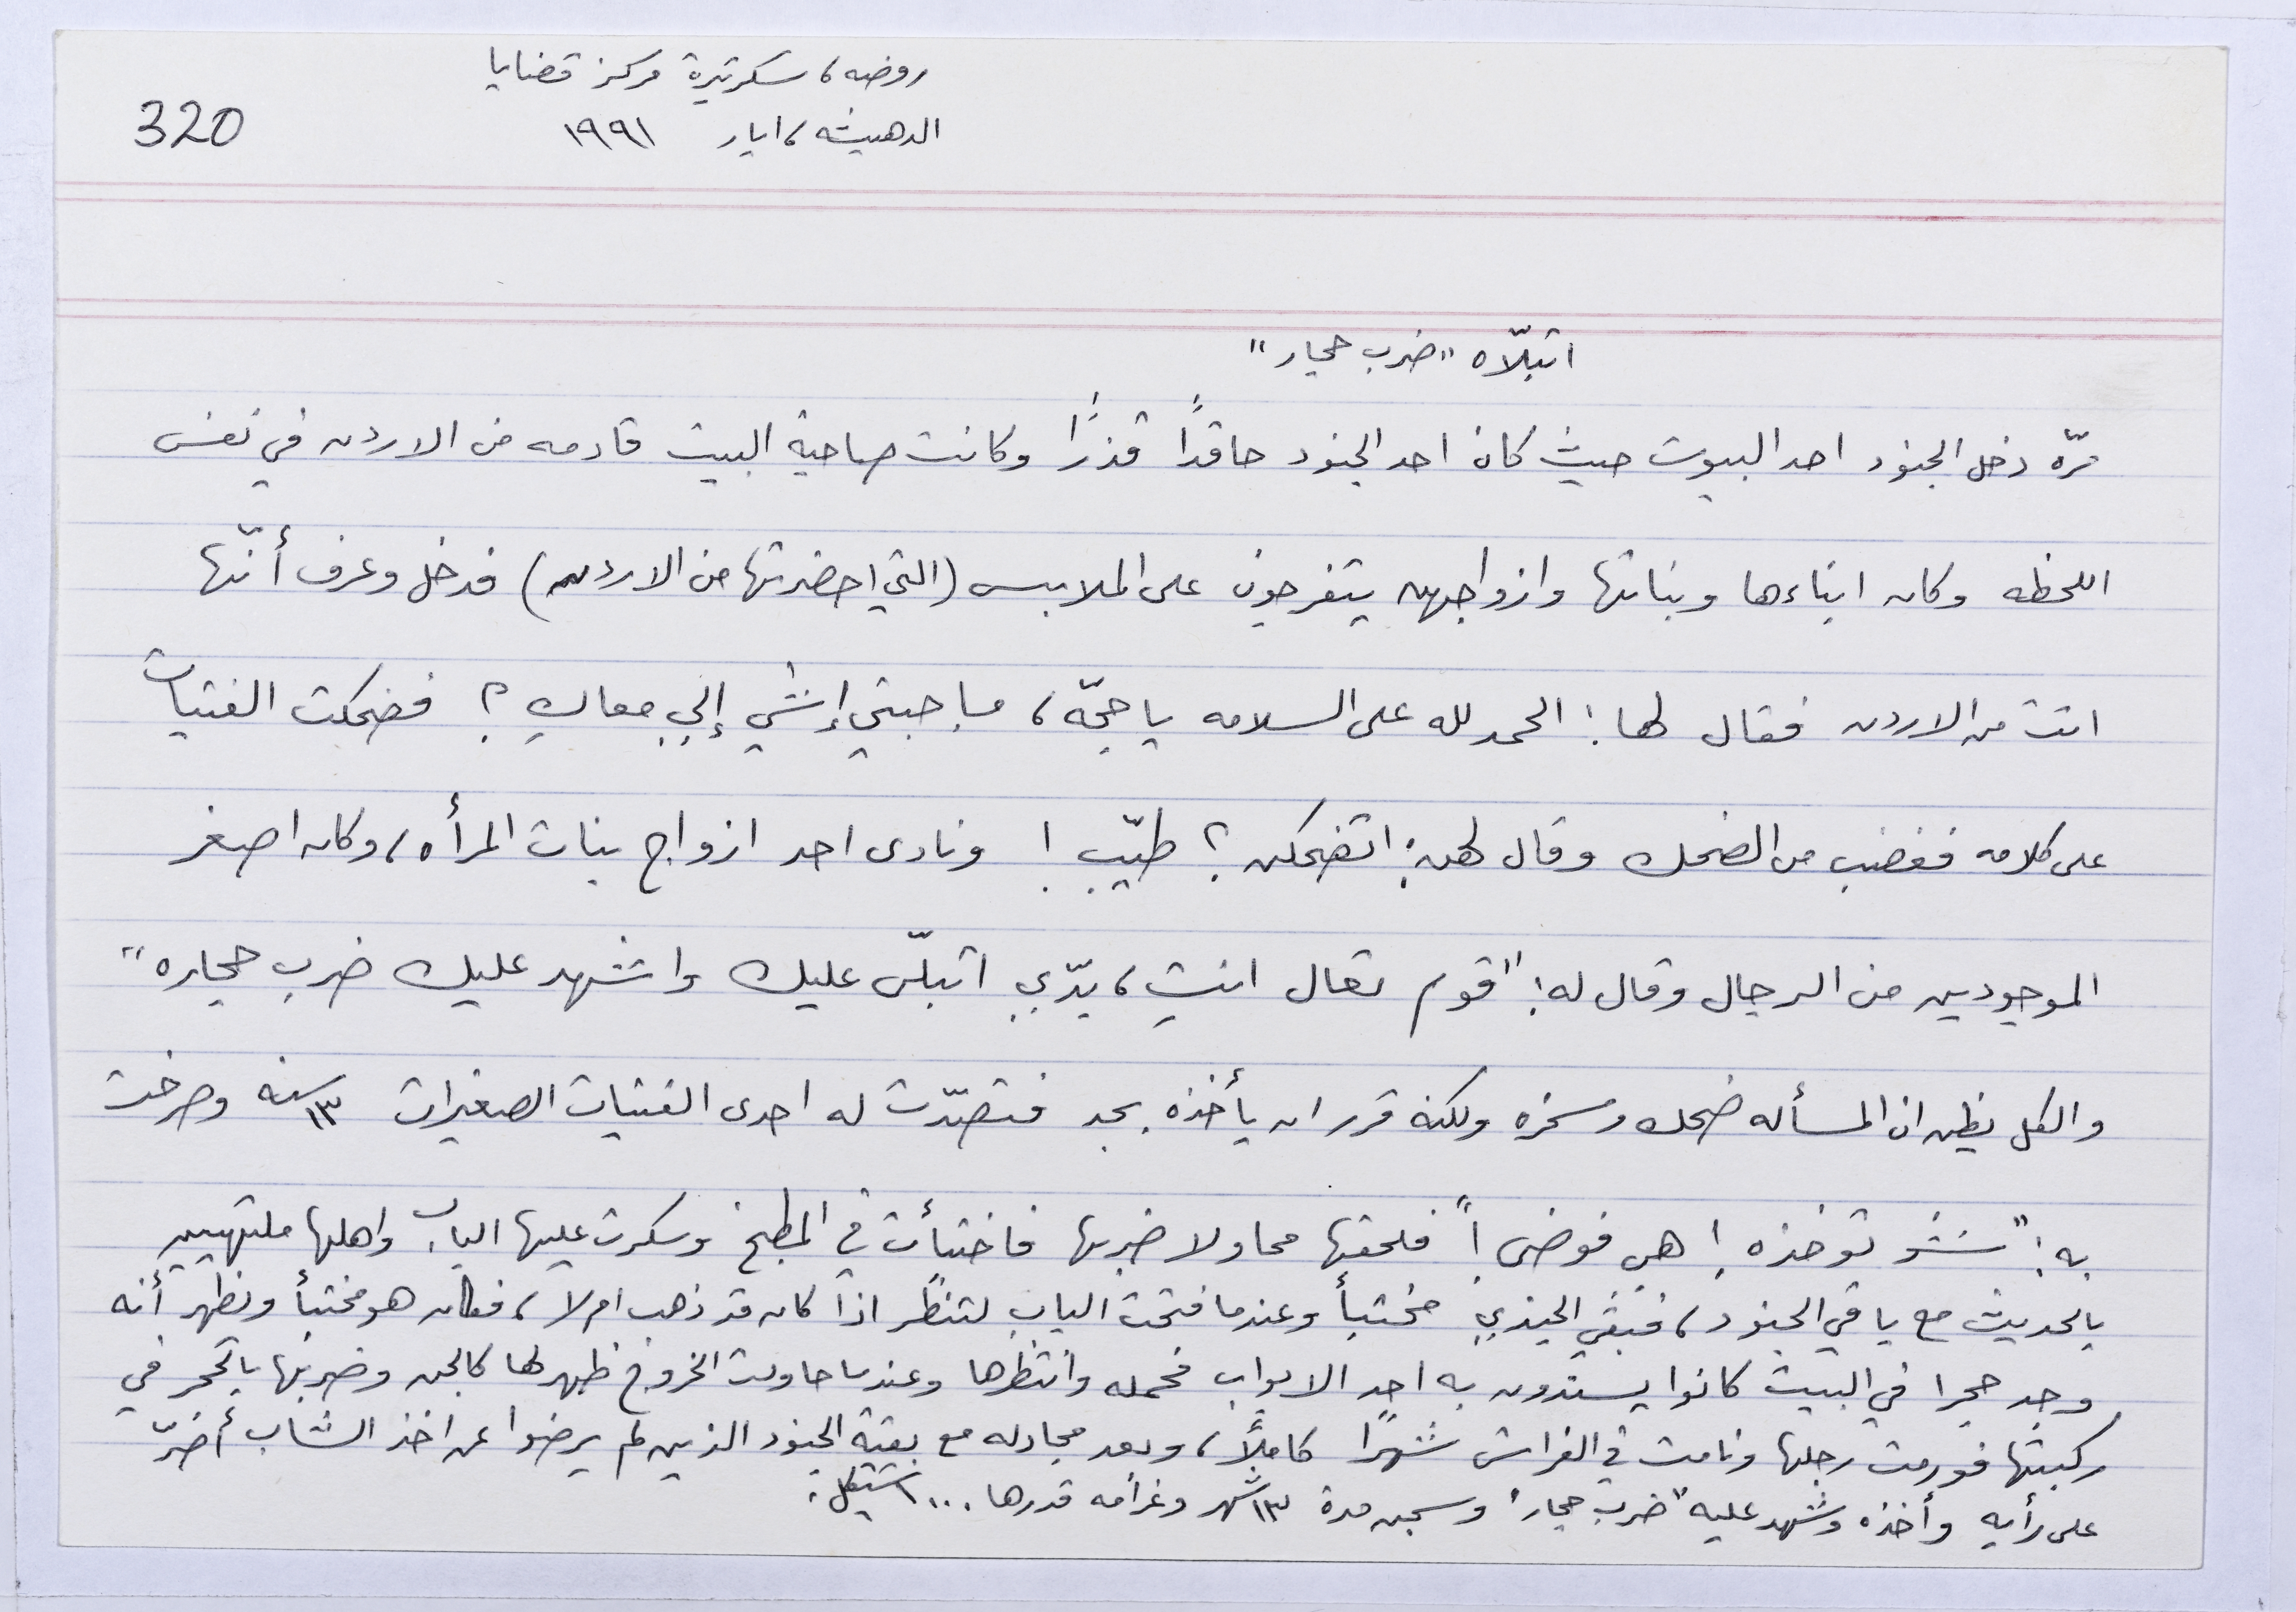 روضه، سكرتيرة مركز قضايا
الدهيشه، ايار ١٩٩١
320
اتبلّاه "ضرب حجار"
مرّه دخل الجنود احد البيوت حيث كان احد الجنود حاقداً قذرًا وكانت صاحبة البيت قادمه من الاردن في نفس
اللحظه وكان ابناءها وبناتها وازواجهن يتفرجون على الملابس (التي احضرتها من الاردن) فدخل وعرف أنّها
اتت من الاردن فقال لها: الحمد لله على السلامه يا حجّه، ما جبتي إشي إلي معاكِ؟ فضحكت الفتيات
على كلامه فغضب من الضحك وقال لهن: اتضحكن؟ طيّب! ونادى احد ازواج بنات المرأه، وكان اصغر
الموجودين من الرجال وقال له: "قوم تعال انتِ، بدّي اتبلّى عليك واشهد عليك ضرب حجاره"
والكل يظن ان المسأله ضحك ومسخره ولكنه قرر ان يأخذه بجد فتصدّت له احدى الفتيات الصغيرات ١٣ سنه وصرخت
به: "شو توخذه! هي فوضى!" فلحقها محاولا ضربها فاختبأت في المطبخ وسكرت عليها الباب واهلها ملتهيين
بالحديث مع باقي الجنود، فبقي الجندي مختبأ وعندما فتحت الباب لتنظر اذا كان قد ذهب ام لا، فكان هو مختبأ ونظهر أنه
وجد حجرا في البيت كانوا يسندون به احد الابواب فحمله وانتظرها وعندما حاولت الخروج ظهر لها كالجن وضربها بالحجر في
ركبتها فورمت رجلها ونامت في الفراش شهرًا كاملًا، وبعد مجادله مع بقية الجنود الذين لم يرضوا عن اخذ الشاب أضرّ
على رأيه وأخذه وشهد عليه "ضرب حجار" وسجن مدة ١٣ شهر وغرامه قدرها ... شيقل.